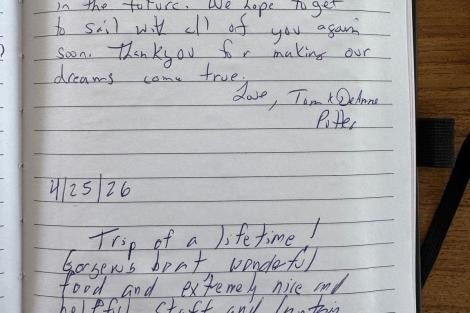 in the future. We hope to get
to sail with all of you again
soon. Thankyou for making our
dreams come true.
Love, Tom & DeAnne
Potter
4/25/26
Trip of a lifetime!
Gorgeus boat wonderful
food and extremely nice and
helpful staff and